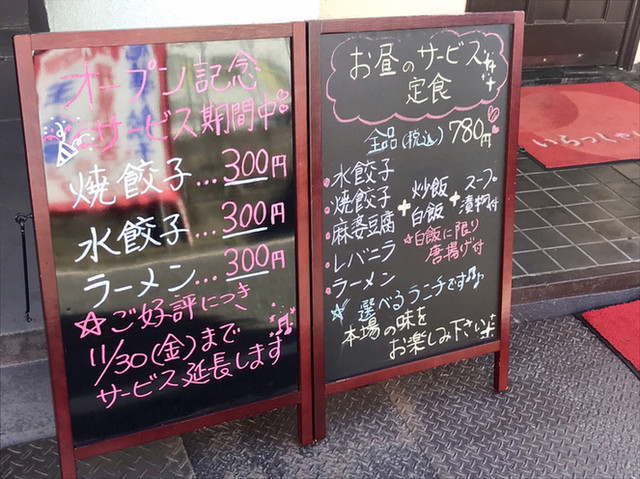 オープン記念
サービス期間中
焼餃子…300円
水餃子…300円
ラーメン…300円
☆ご好評につき
11/30(金)まで
サービス延長します
お昼のサービス
定食
全品(税込)780円
・水餃子
・焼餃子
・麻婆豆腐
・レバニラ
・ラーメン
+
炒飯
白飯
+
スープ
漬物付
☆白飯に限り
唐揚げ付
☆選べるランチです♪
本場の味を
お楽しみ下さい
いらっしゃ